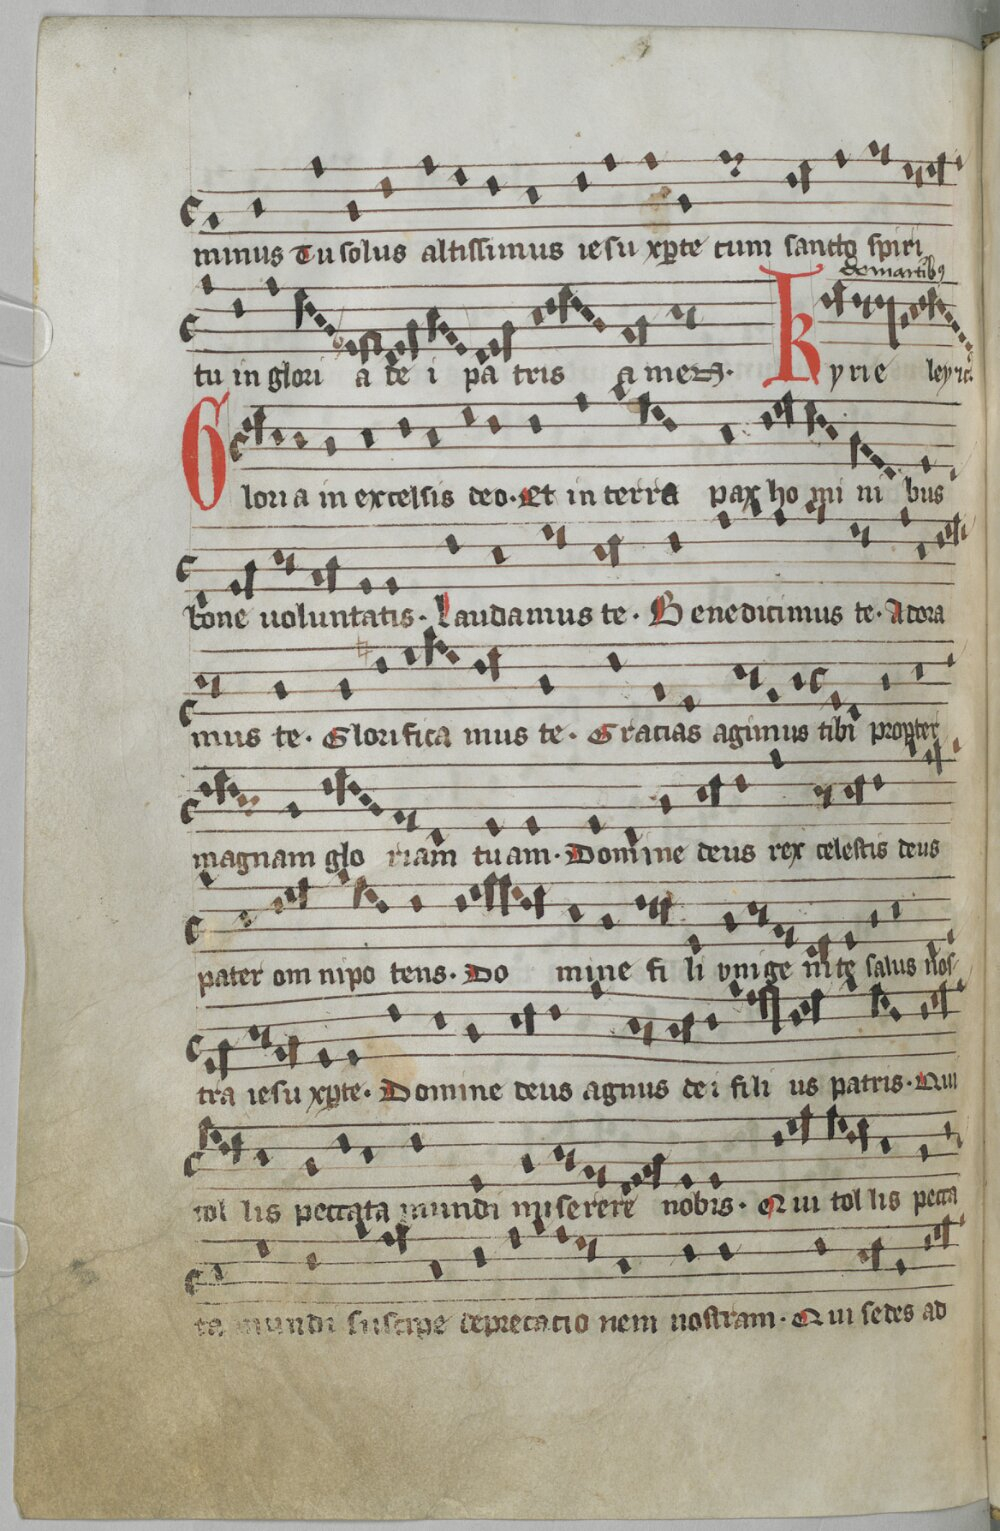 minus Tu solus altissimus iesu xp̄te cum sancto spiri
de martib9
tu in glori a de i pa tris a men. Kyrie leyson
Gloria in excelsis deo. Et in terra pax ho mi ni bus
bone uoluntatis. Laudamus te. Benedicimus te. Adora
mus te. Glorifica mus te. Gracias agimus tibi propter
magnam glo riam tuam. Domine deus rex celestis deus
pater om nipo tens. Do mine fi li vnige nite salus nos
tra iesu xp̄te. Domine deus agnus dei fili us patris. Qui
tol lis peccata mundi miserere nobis. Qui tol lis pecca
ta mundi suscipe deprecacio nem nostram. Qui sedes ad